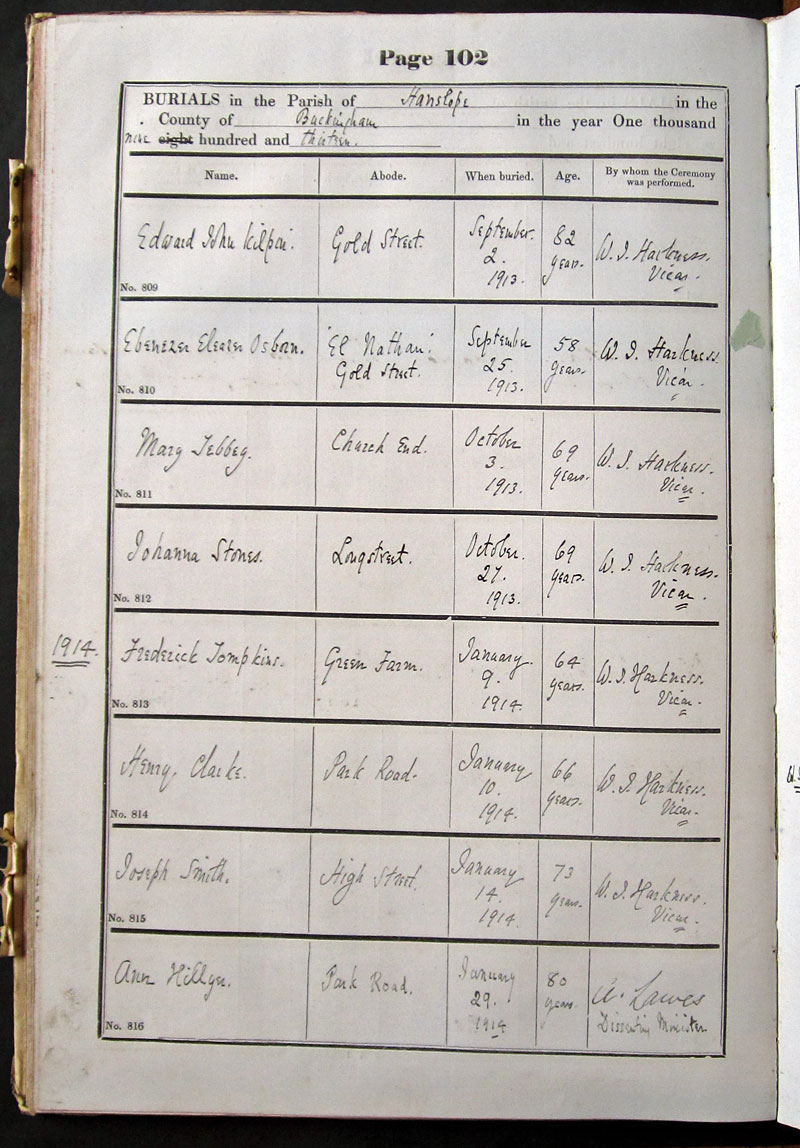 Page 102
BURIALS in the Parish of Hanslope in the
County of Buckingham in the year One thousand
nine eight hundred and thirteen.
Name. Abode. When buried. Age. By whom the Ceremony
was performed.
Edward John Kilpin. Gold Street. September 82 W. J. Harkness.
2. years. Vicar.
1913.
No. 809
Ebenezer Eleazer Osborn. 'El Nathan'. September 58 W. J. Harkness.
Gold Street. 25. years. Vicar.
1913.
No. 810
Mary Tebbey. Church End. October 69 W. J. Harkness.
3. years. Vicar.
1913.
No. 811
Johanna Stones. Longstreet. October. 69 W. J. Harkness.
27. years. Vicar.
1913.
No. 812
1914.
Frederick Tompkins. Green Farm. January 64 W. J. Harkness.
9. years. Vicar.
1914.
No. 813
Henry Clarke. Park Road. January 66 W. J. Harkness.
10. years. Vicar.
1914.
No. 814
Joseph Smith. High Street. January 73 W. J. Harkness.
14. years. Vicar.
1914
No. 815
Ann Hillyer. Park Road. January 80 Lawes
29. years. Dissenting Minister
1914
No. 816